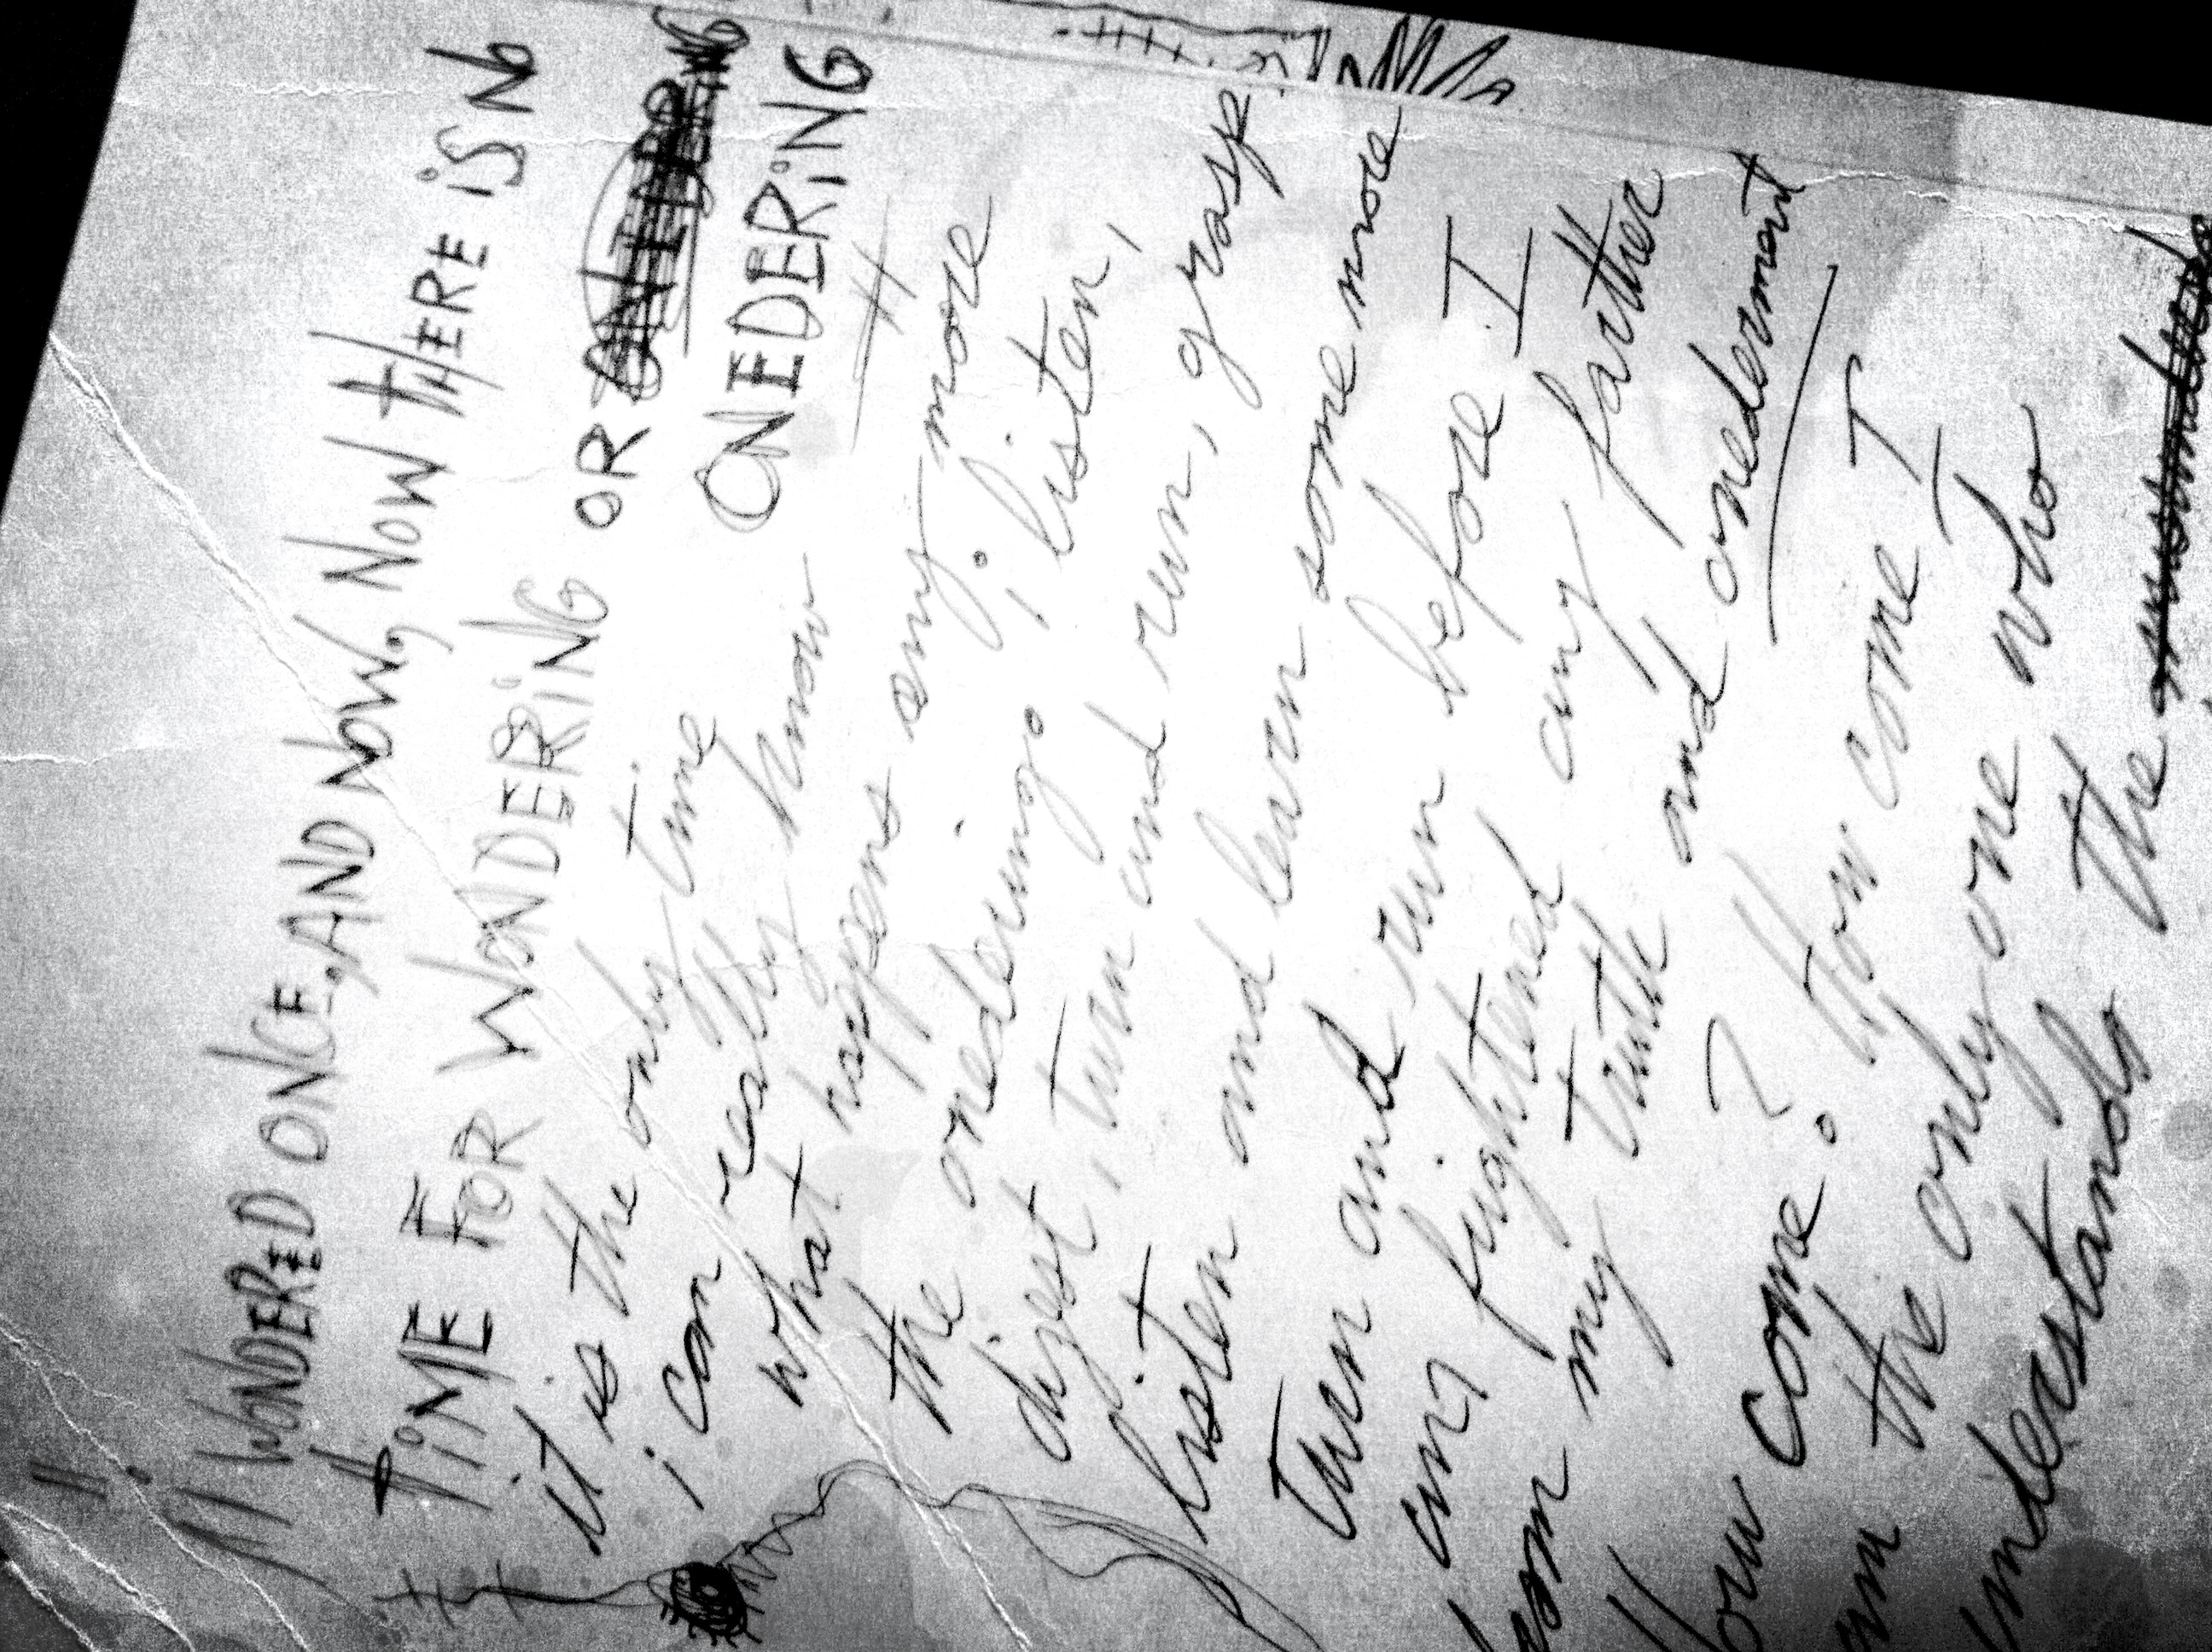 I WONDERED ONCE, AND NOW, NOW THERE iS NO
TiME FOR WONDERiNG OR
ONEDERiNG
it is the only time
i can really know
what happens any more
the onedering; listen,
digest, turn and run, grasp
listen and learn some more
Turn and run before I
am frightened any farther
from my truth and onederment
How come? How come I
am the only one who
understands the